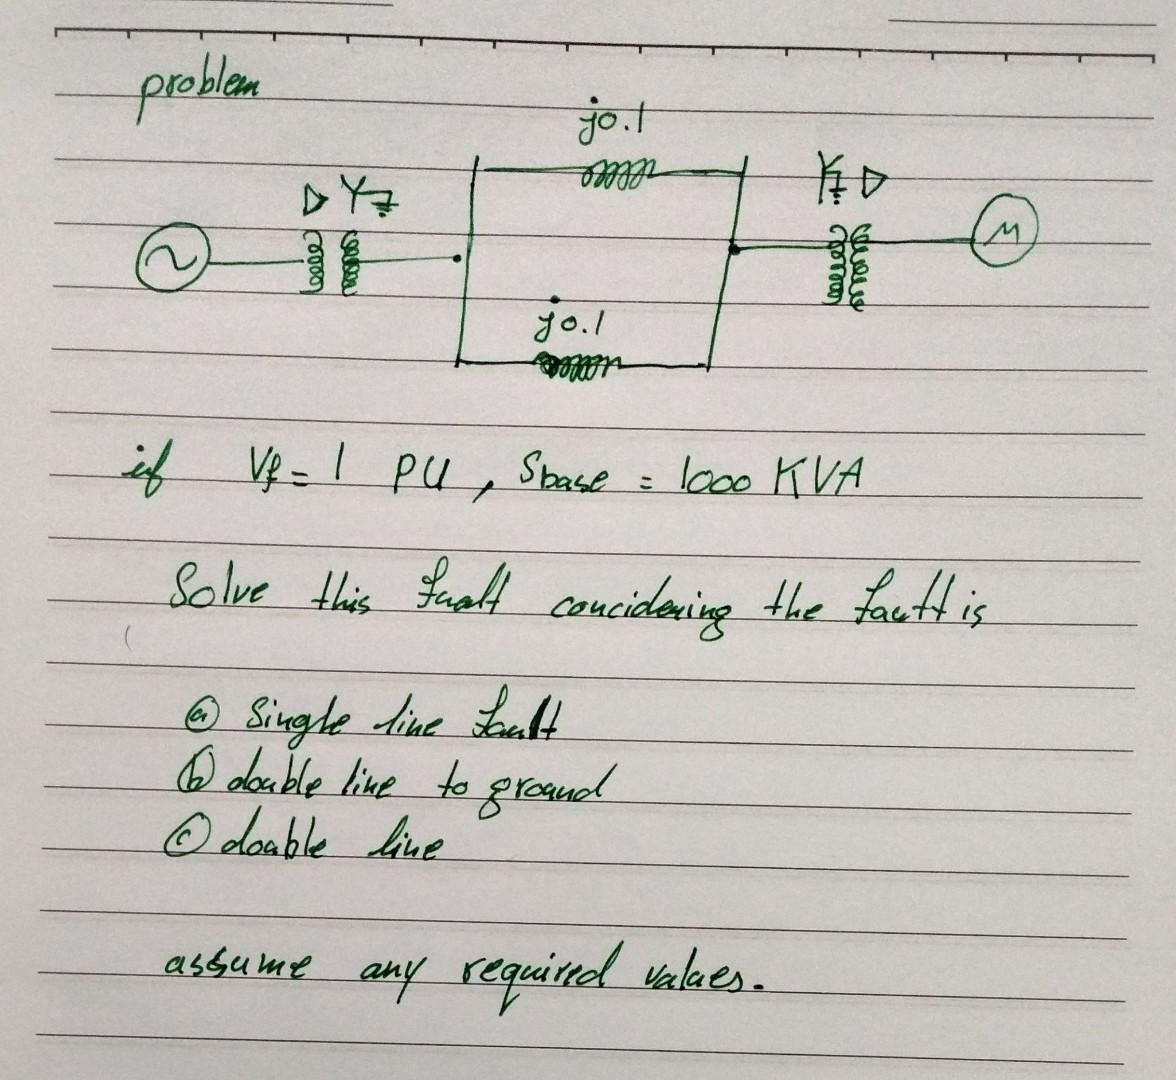 problem
j0.1
Δ Y
Y Δ
~
M
j0.1
if Vf = 1 PU, Sbase = 1000 KVA
Solve this fualt concidering the fault is
ⓐ Single line fault
ⓑ double line to ground
ⓒ double line
assume any required values.